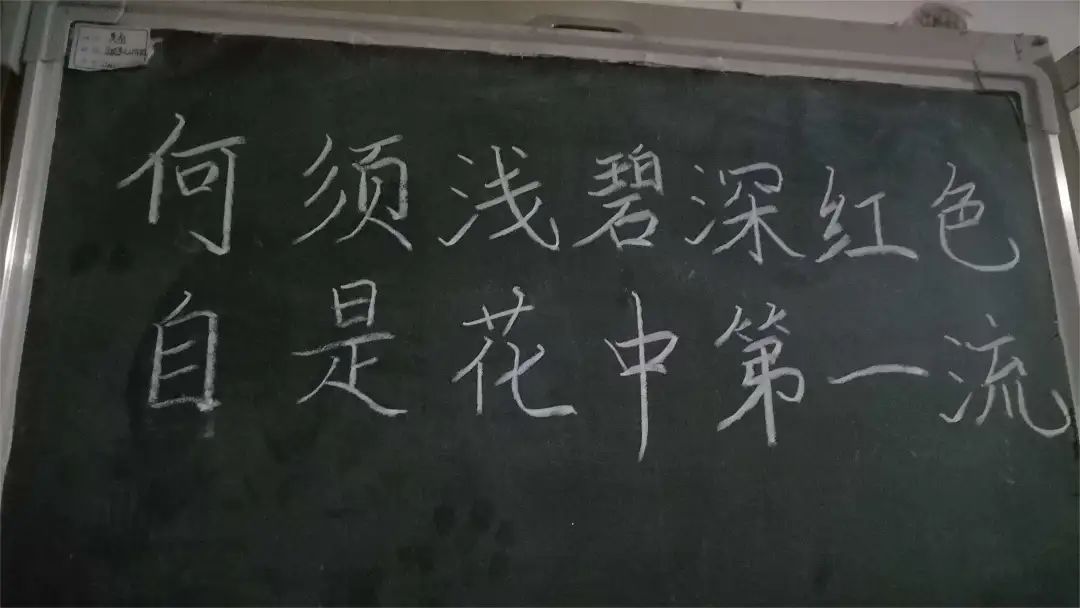 何须浅碧深红色
自是花中第一流